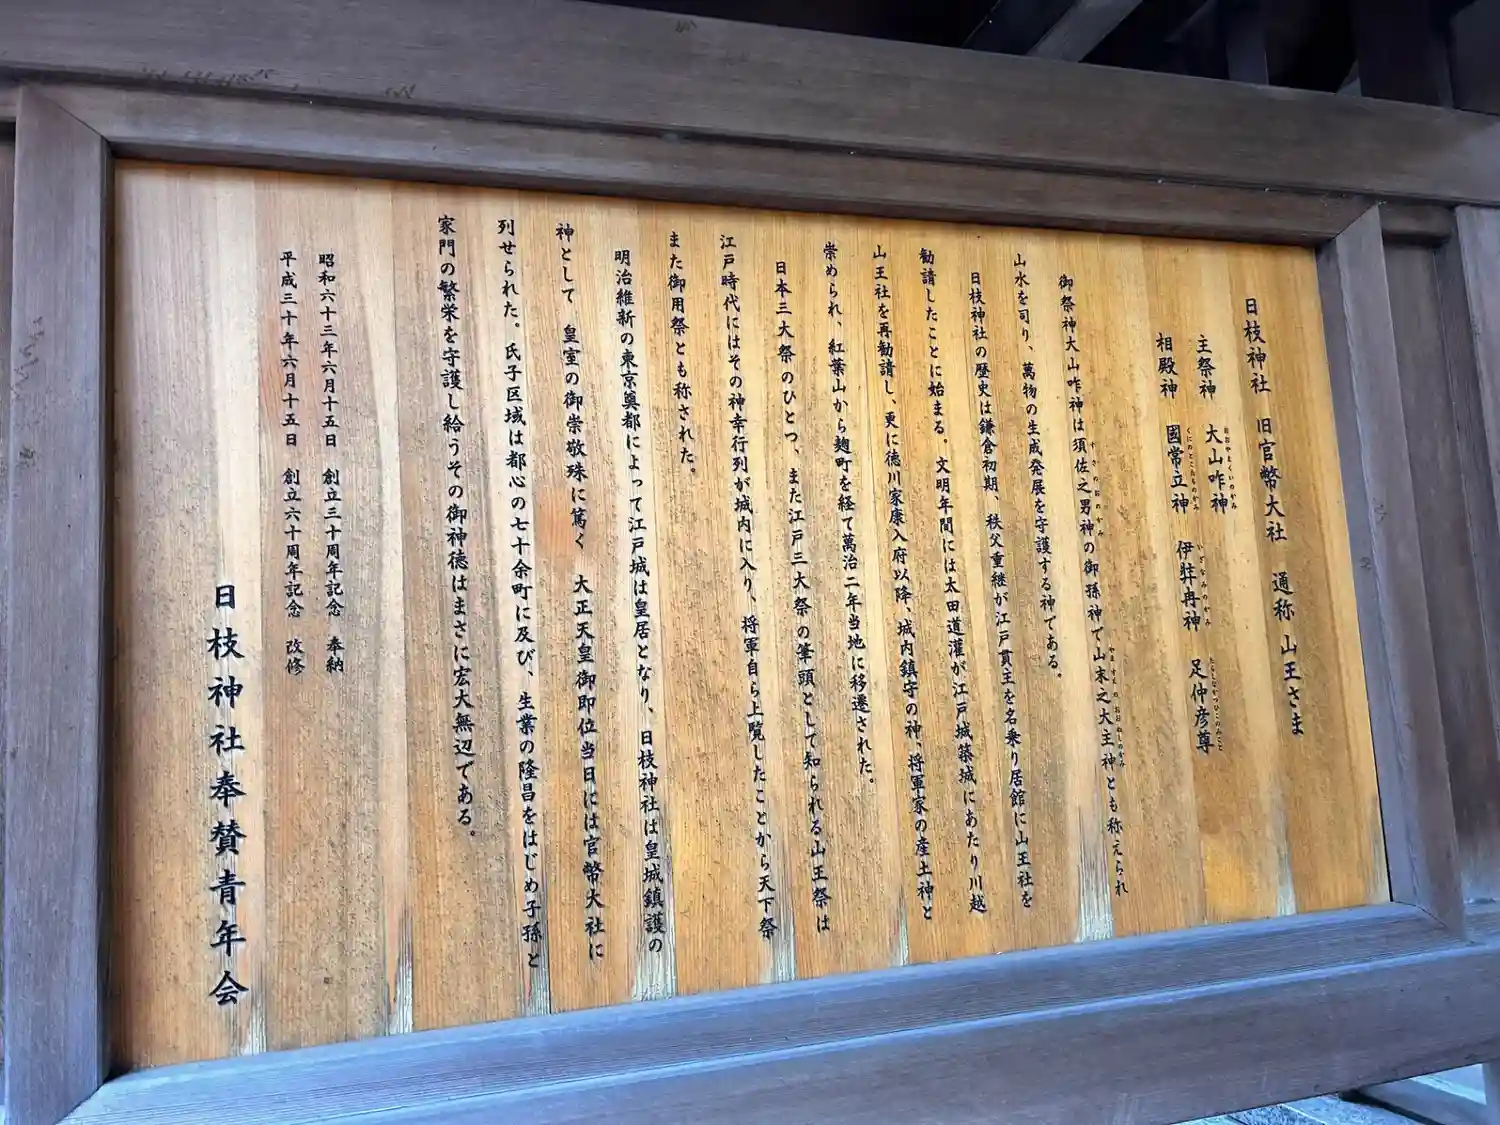 日枝神社 旧官幣大社 通称 山王さま
主祭神 大山咋神 おおやまくいのかみ
相殿神 國常立神 くにのとこたちのかみ 伊弉冉神 いざなみのかみ 足仲彦尊 たらしなかつひこのみこと
御祭神大山咋神は須佐之男神の御孫神で山末之大主神とも称えられ
すさのおのかみ やますえのおおぬしのかみ
山水を司り、萬物の生成発展を守護する神である。
日枝神社の歴史は鎌倉初期、秩父重継が江戸貫主を名乗り居館に山王社を
勧請したことに始まる。文明年間には太田道灌が江戸城築城にあたり川越
山王社を再勧請し、更に徳川家康入府以降、城内鎮守の神、将軍家の産土神と
崇められ、紅葉山から麹町を経て萬治二年当地に移遷された。
日本三大祭のひとつ、また江戸三大祭の筆頭として知られる山王祭は
江戸時代にはその神幸行列が城内に入り、将軍自ら上覧したことから天下祭
また御用祭とも称された。
明治維新の東京奠都によって江戸城は皇居となり、日枝神社は皇城鎮護の
神として 皇室の御崇敬殊に篤く 大正天皇御即位当日には官幣大社に
列せられた。氏子区域は都心の七十余町に及び、生業の隆昌をはじめ子孫と
家門の繁栄を守護し給うその御神徳はまさに宏大無辺である。
昭和六十三年六月十五日 創立三十周年記念 奉納
平成三十年六月十五日 創立六十周年記念 改修
日枝神社奉賛青年会